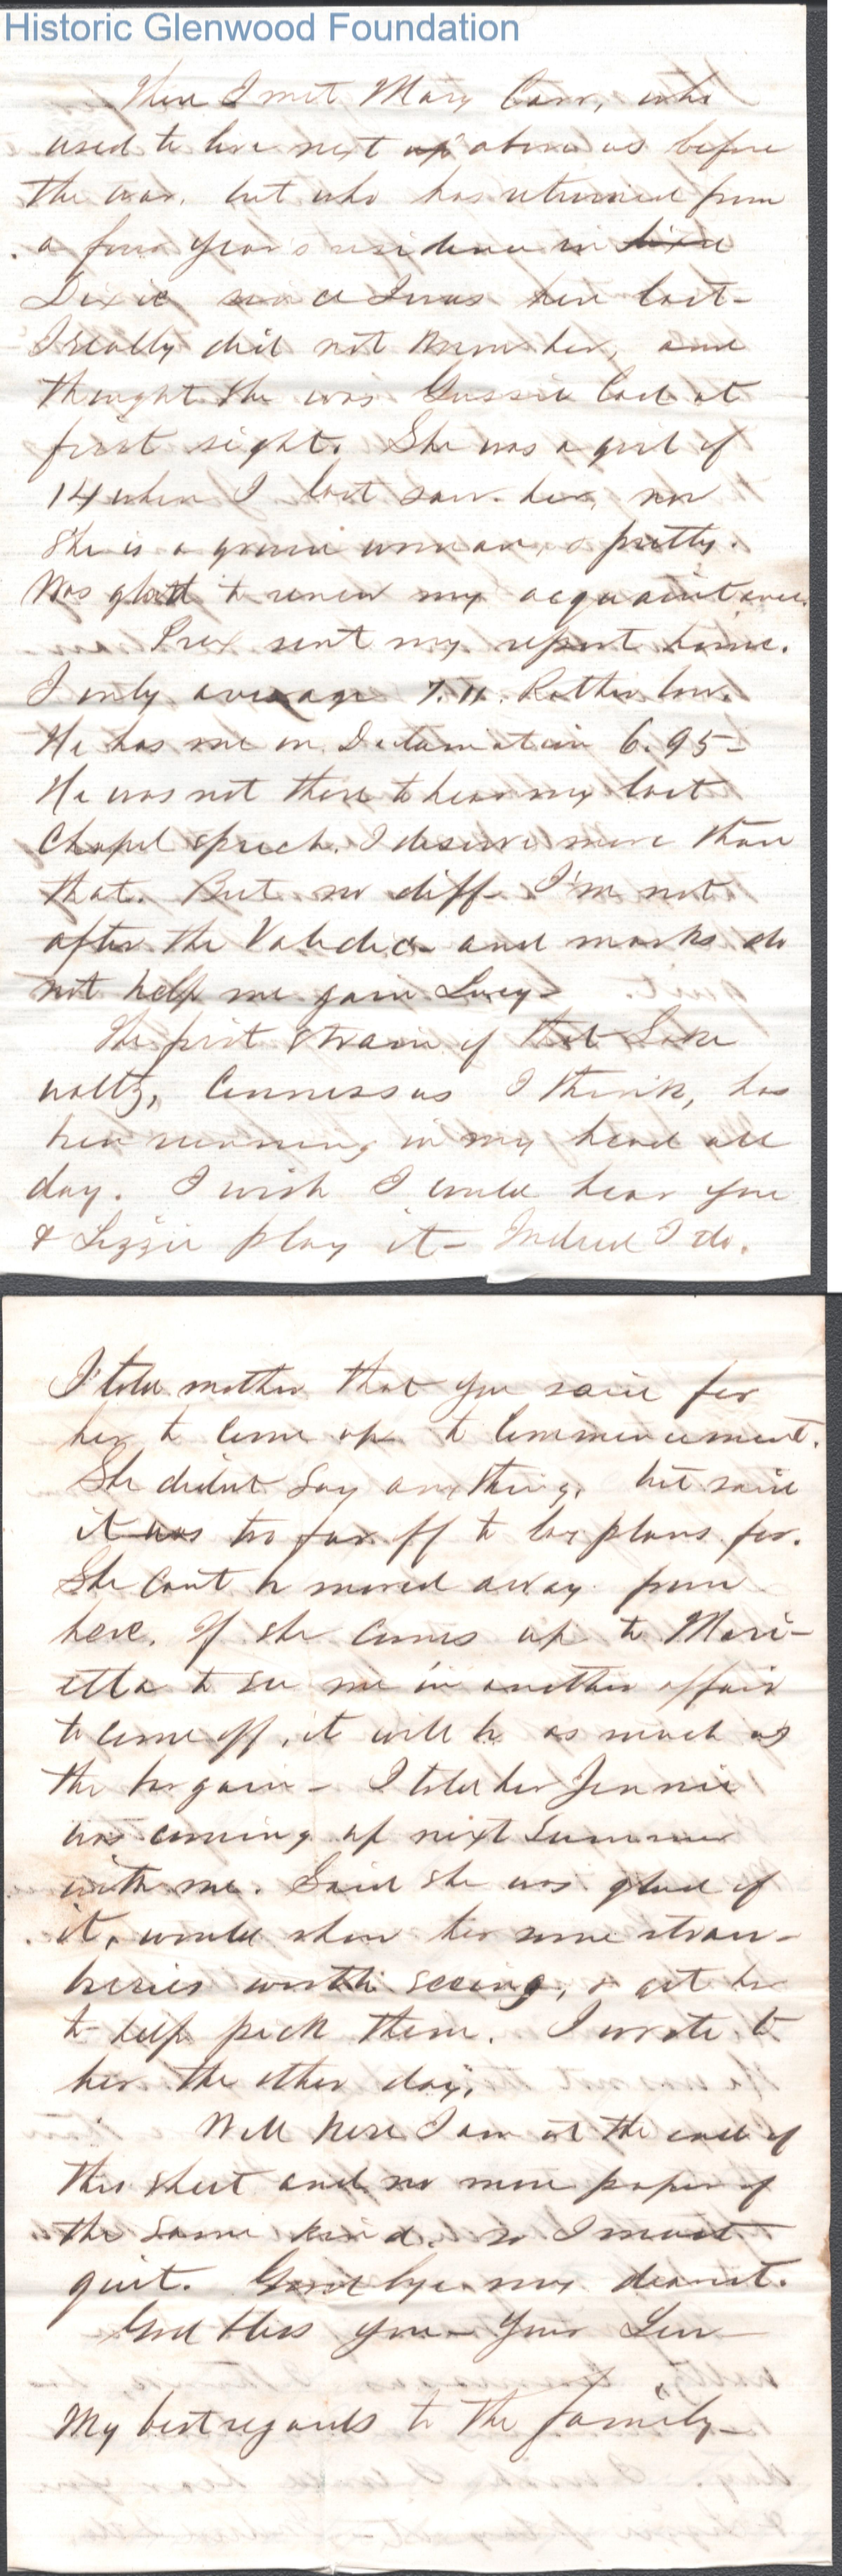 Historic Glenwood Foundation
There I met Mary Carr, who
used to live next up above us before
the war, but who has returned from
a four year's residence in Dixie
Dixie since I was here last-
I really did not know her, and
thought she was Gussie at
first sight. She was a girl of
14 when I last saw her, now
she is a grown woman, & pretty.
Was glad to renew my acquaintance.
Prex sent my report home.
I only average 7.11. Rather low.
He has me on Declamation 6.95-
He was not there to hear my last
Chapel speech. I deserve more than
that. But no diff- I'm not
after the Valedic- and marks do
not help me gain Lucy-
The first strain of that
waltz, I think, has
been running in my head all
day. I wish I could hear you
& Lizzie play it- Indeed I do.
I told mother that you said for
her to come up to Commencement.
She didnt say anything, but said
it was too far off to lay plans for.
She cant be moved away from
here. If she comes up to Mari-
etta to see me in another affair
to come off, it will be as much as
the bargain- I told her Jennie
was coming up next summer
with me. Said she was glad of
it, would show her some straw-
berries worth seeing, & get her
to help pick them. I wrote to
her the other day.
Well here I am at the end of
this sheet and no more paper of
the same kind, so I must
quit. Good bye my dearest.
God bless you- Your Lew
My best regards to the family-